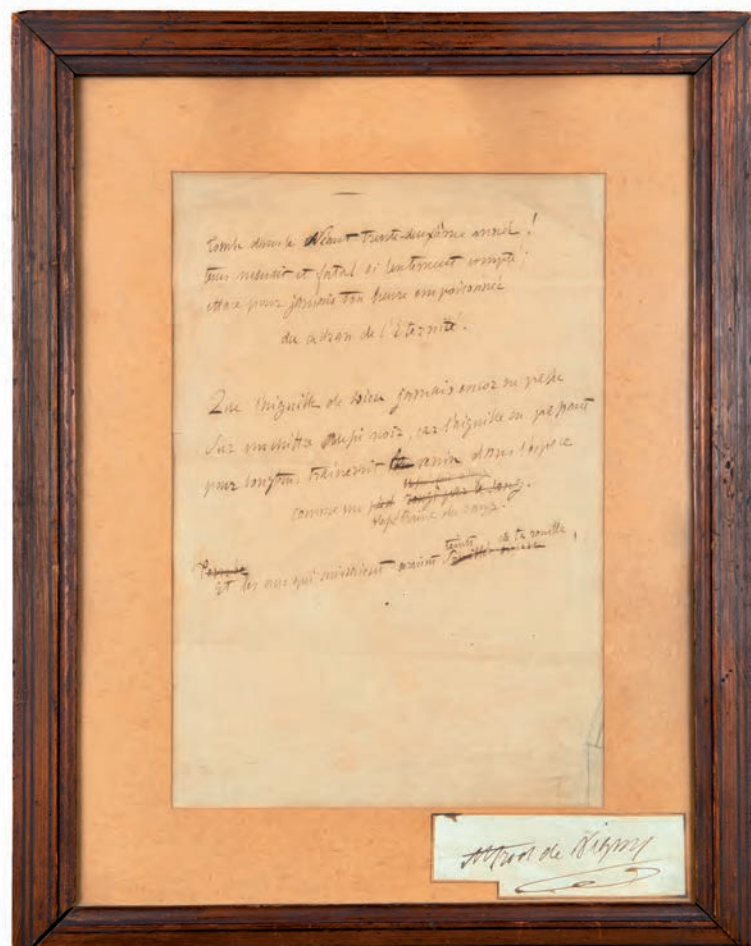 tombe dans le Néant trente-deuxième année !
tems menait et fatal si lentement compté ;
efface pour jamais ton heure empoisonnée
du cadran de l'Éternité.
Que l'aiguille de Dieu jamais encor ne passe
Sur un chiffre aussi noir, car l'aiguille en passant
pour longtems traînerait venin dans l'espace
comme un pied rougi par le sang.
du sang.
et les ans qui suivraient auraient teint de ta rouille,
Alfred de Vigny